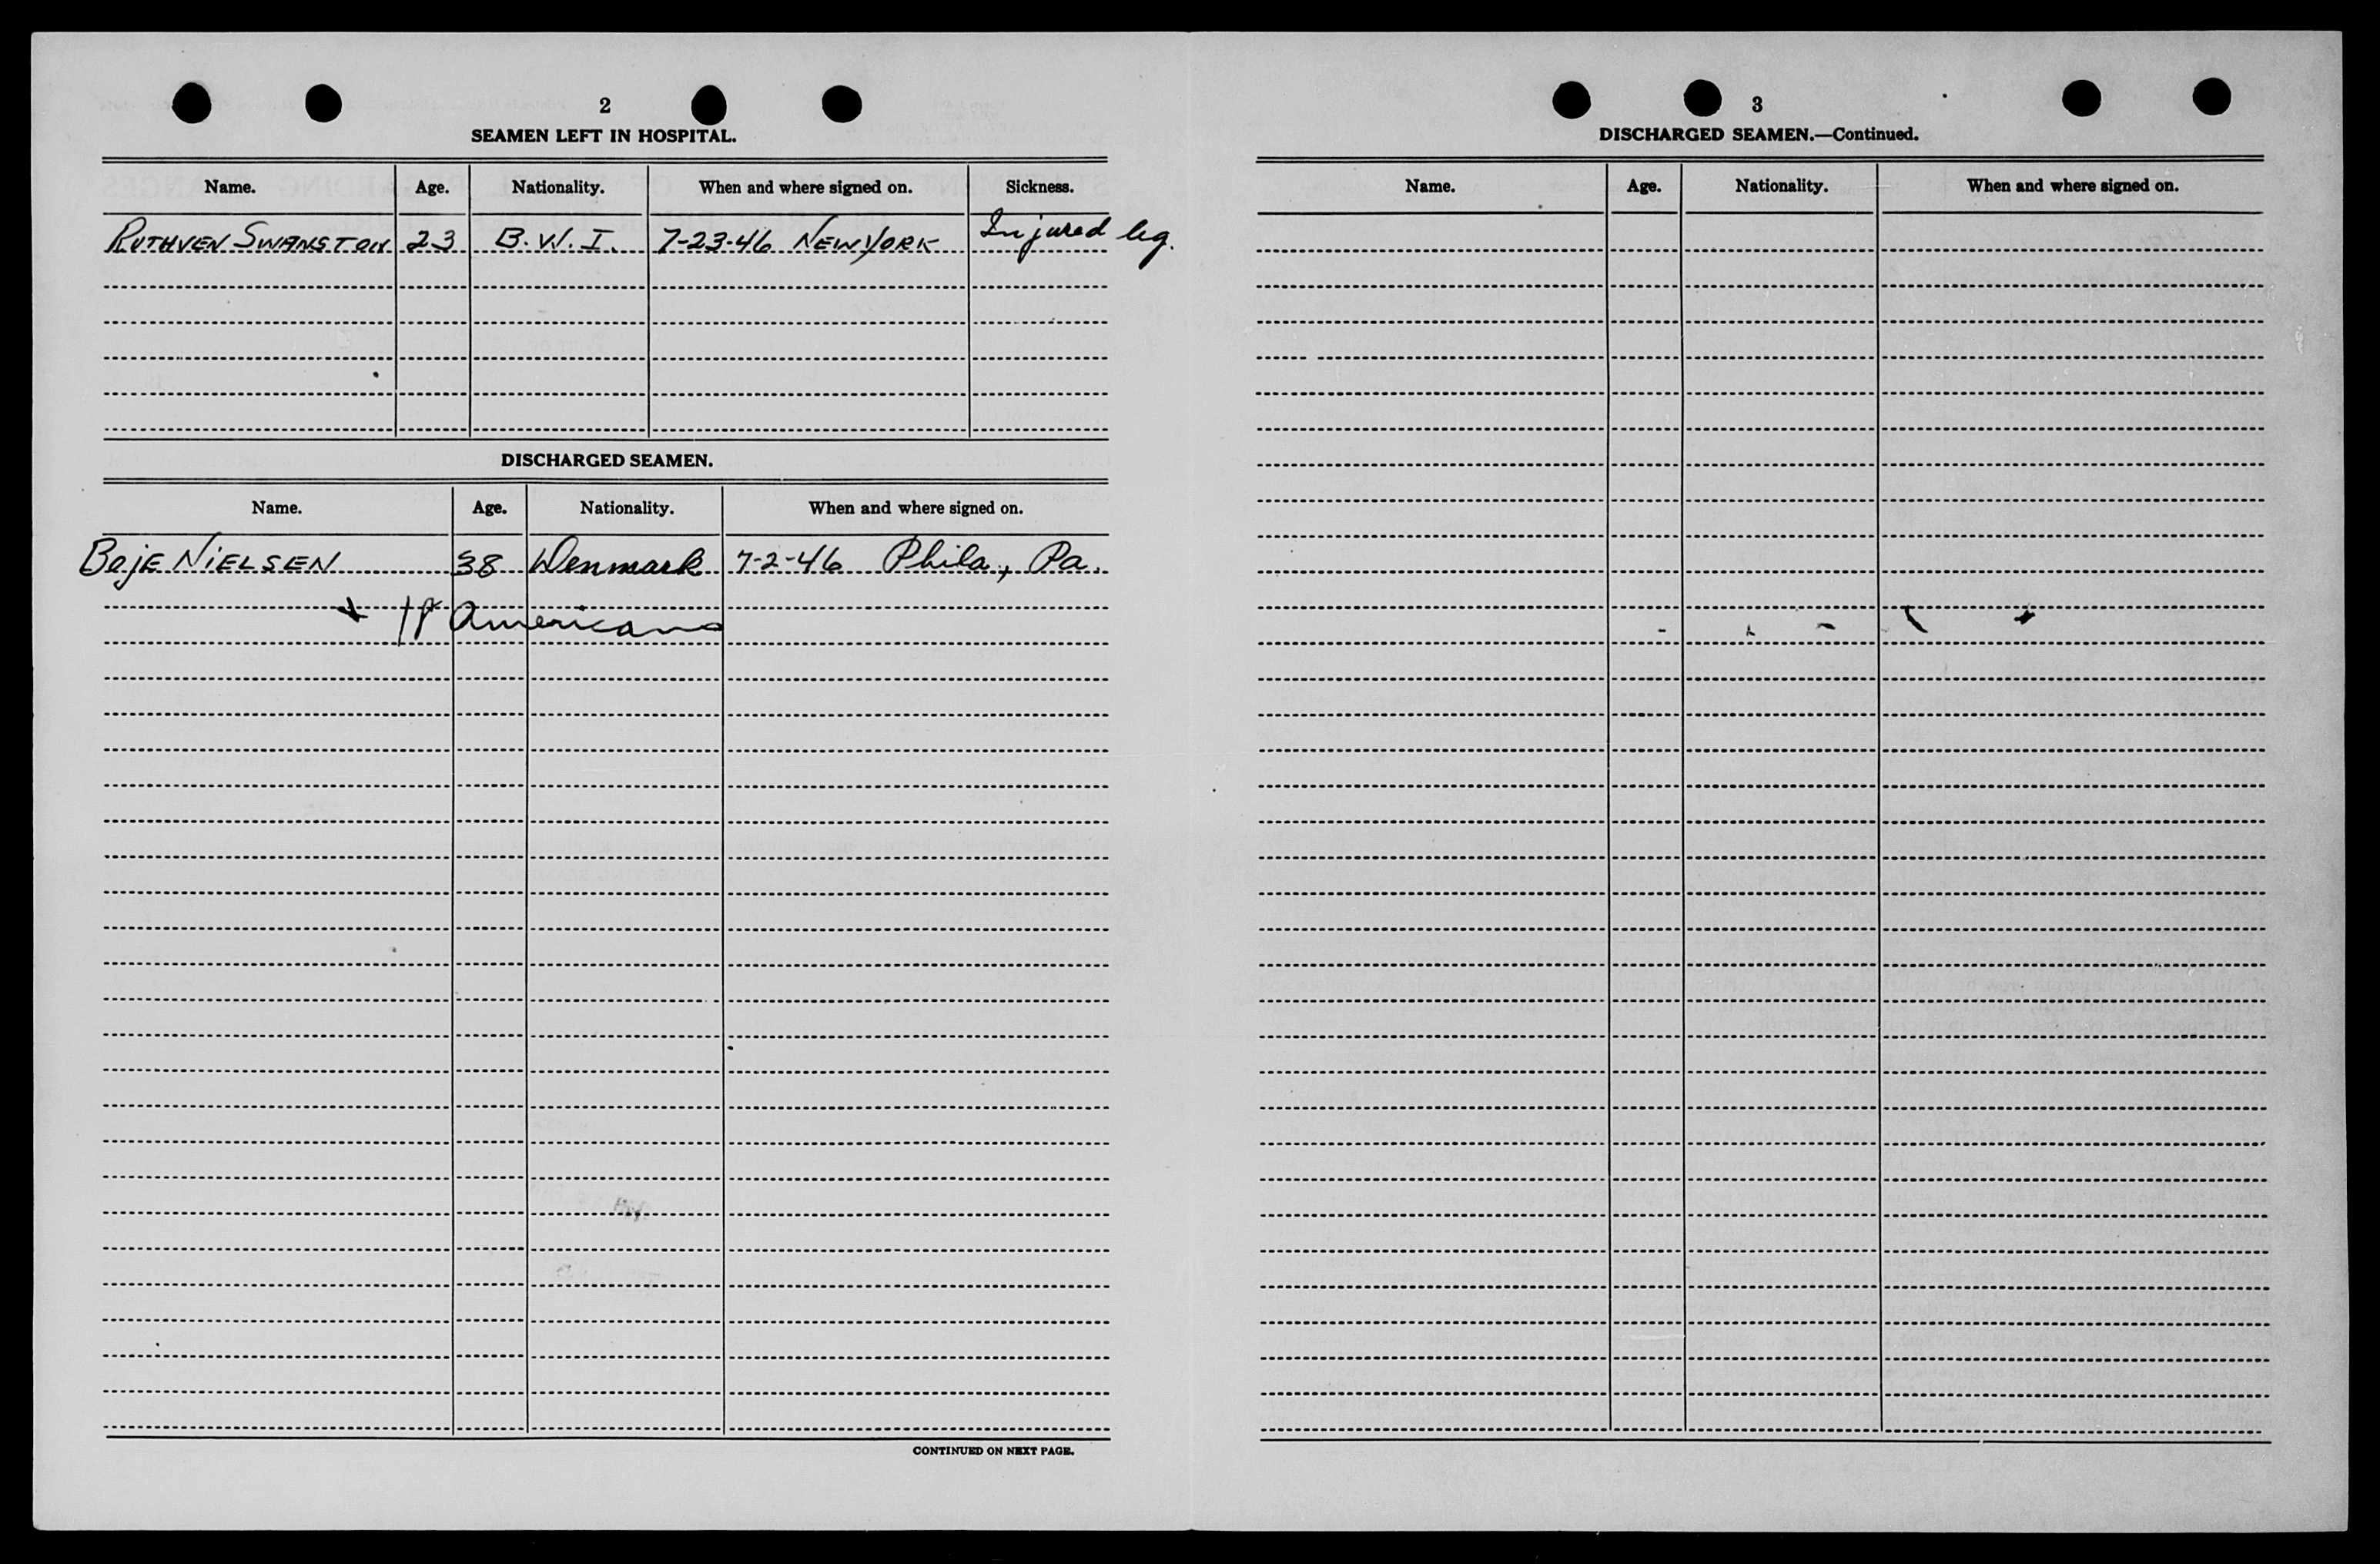 2
SEAMEN LEFT IN HOSPITAL.
Name. Age. Nationality. When and where signed on. Sickness.
RUTHVEN SWANSTON 23 B.W.I. 7-23-46 NEW YORK Injured leg.
DISCHARGED SEAMEN.
Name. Age. Nationality. When and where signed on.
BOJE NIELSEN 38 Denmark 7-2-46 Phila, Pa.
Americans
CONTINUED ON NEXT PAGE.
3
DISCHARGED SEAMEN.—Continued.
Name. Age. Nationality. When and where signed on.